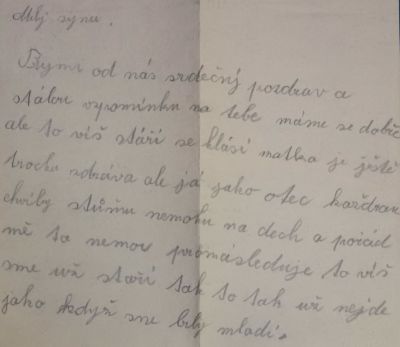 Milý synu.
Přymi od nás srdečný pozdrav a
stálou vzpomínku na tebe máme se dobře
ale to víš stáří se hlásí matka je ještě
trochu zdráva ale já jako otec každou
chvíly stůňu nemohu na dech a pořád
mě ta nemoc pronásleduje to víš
sme už staří tak to tak už nejde
jako když sme byly mladí.